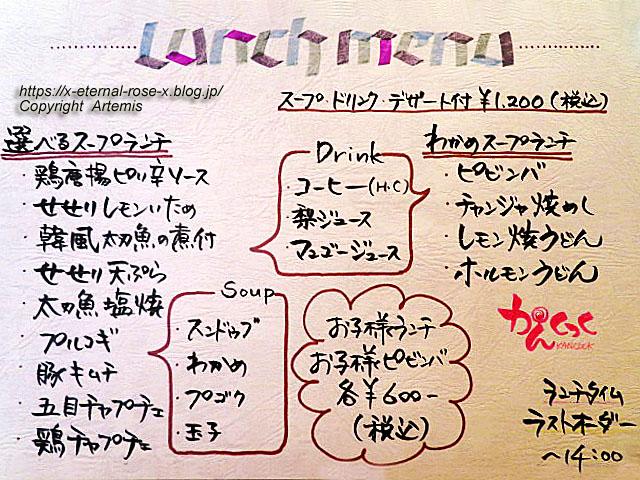 Lunch menu
https://x-eternal-rose-x.blog.jp/
Copyright Artemis
スープ・ドリンク・デザート付 ¥1,200 (税込)
選べるスープランチ
・鶏唐揚ピリ辛ソース
・せせりレモンいため
・韓風太刀魚の煮付
・せせり天ぷら
・太刀魚塩焼
・プルコギ
・豚キムチ
・五目チャプチェ
・鶏チャプチェ
Drink
・コーヒー(H・C)
・梨ジュース
・マンゴージュース
Soup
・スンドゥブ
・わかめ
・プゴク
・玉子
わかめスープランチ
・ピビンバ
・チャンジャ焼めし
・レモン焼うどん
・ホルモンうどん
お子様ランチ
お子様ピビンバ
各¥600-
(税込)
かんくっく
KANCOOK
ランチタイム
ラストオーダー
～14:00